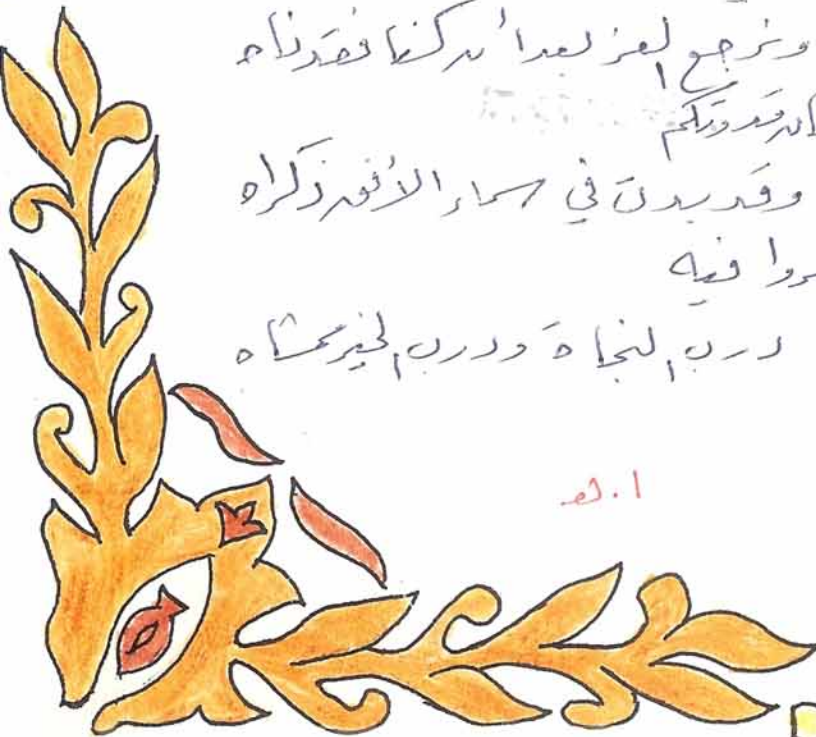 ونرجع العز بعد أن كنا فقدناه
قدوتكم
وقد بدت في سماء الأفق ذكراه
روا فيه
درب النجاة ودرب الخير ممشاه